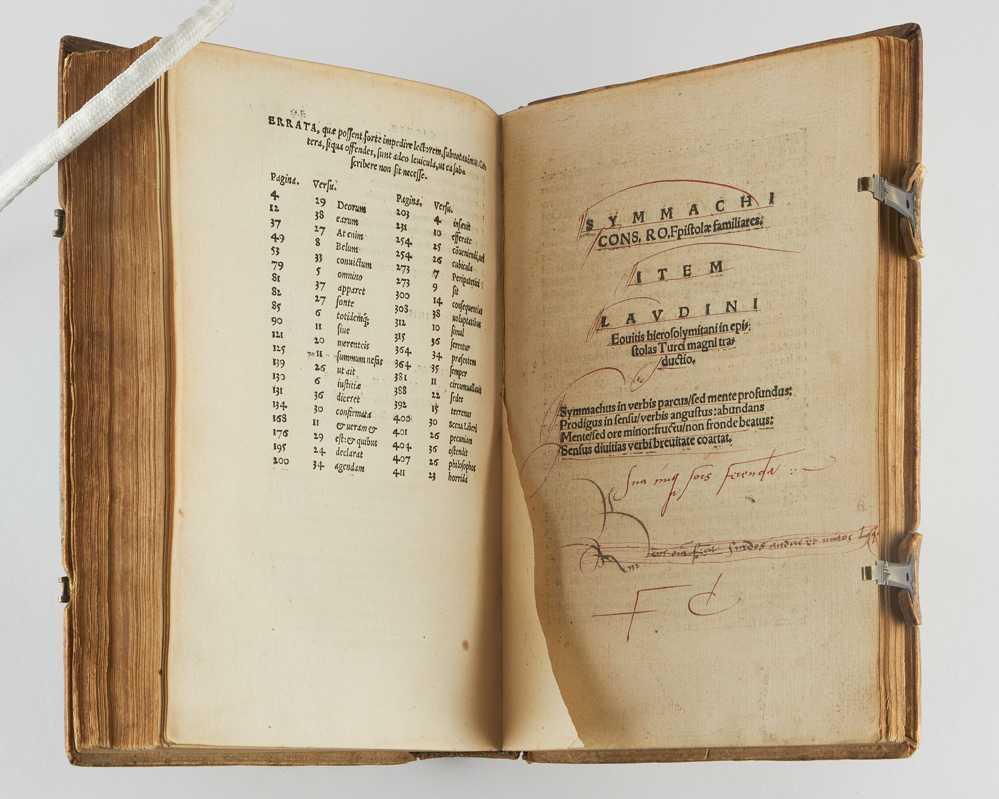 ERRATA, quæ possent forte impedire lectorem, subnotauimus. Cæ
tera, siqua offendes, sunt adeo leuicula, ut ea sub
scribere non sit necesse.
Pagina. Versu. Pagina. Versu.
4 29 Deorum 203 4 inseuit
12 38 earum 231 10 efferate
37 27 At enim 254 25
49 8 Belum 254 26 cubicula
53 33 conuictum 273 7 Peripatetici
79 5 omnino 273 9 sit
81 37 apparet 300 14 consequentia
82 27 fonte 308 38 uoluptatibus
85 6 totidemq; 312 10 simul
90 11 siue 315 36 feretur
121 20 merenteis 364 34 præsentem
125 11 summum nefas 364 35 semper
139 26 ut ait 381 11
130 6 iustitiæ 388 22 sedet
131 36 diceret 392 15 terrenus
134 30 confirmata 400 30
168 11 & ueram & 401 26 pecunium
176 29 est: & quibus 404 36 ostendit
195 24 declarat 407 26 philosophos
200 34 agendam 411 23 horrida
SYMMACHI
CONS. RO. Epistolæ familiares.
ITEM
LAVDINI
Equitis hierosolymitani in epi-
stolas Turci magni tra-
ductio.
Symmachus in verbis parcus/sed mente profundus:
Prodigus in sensu/verbis angustus: abundans
Mente/sed ore minor: fructu/non fronde beatus:
Sensus diuitias verbi breuitate coartat.
Sua sors ferenda
F C